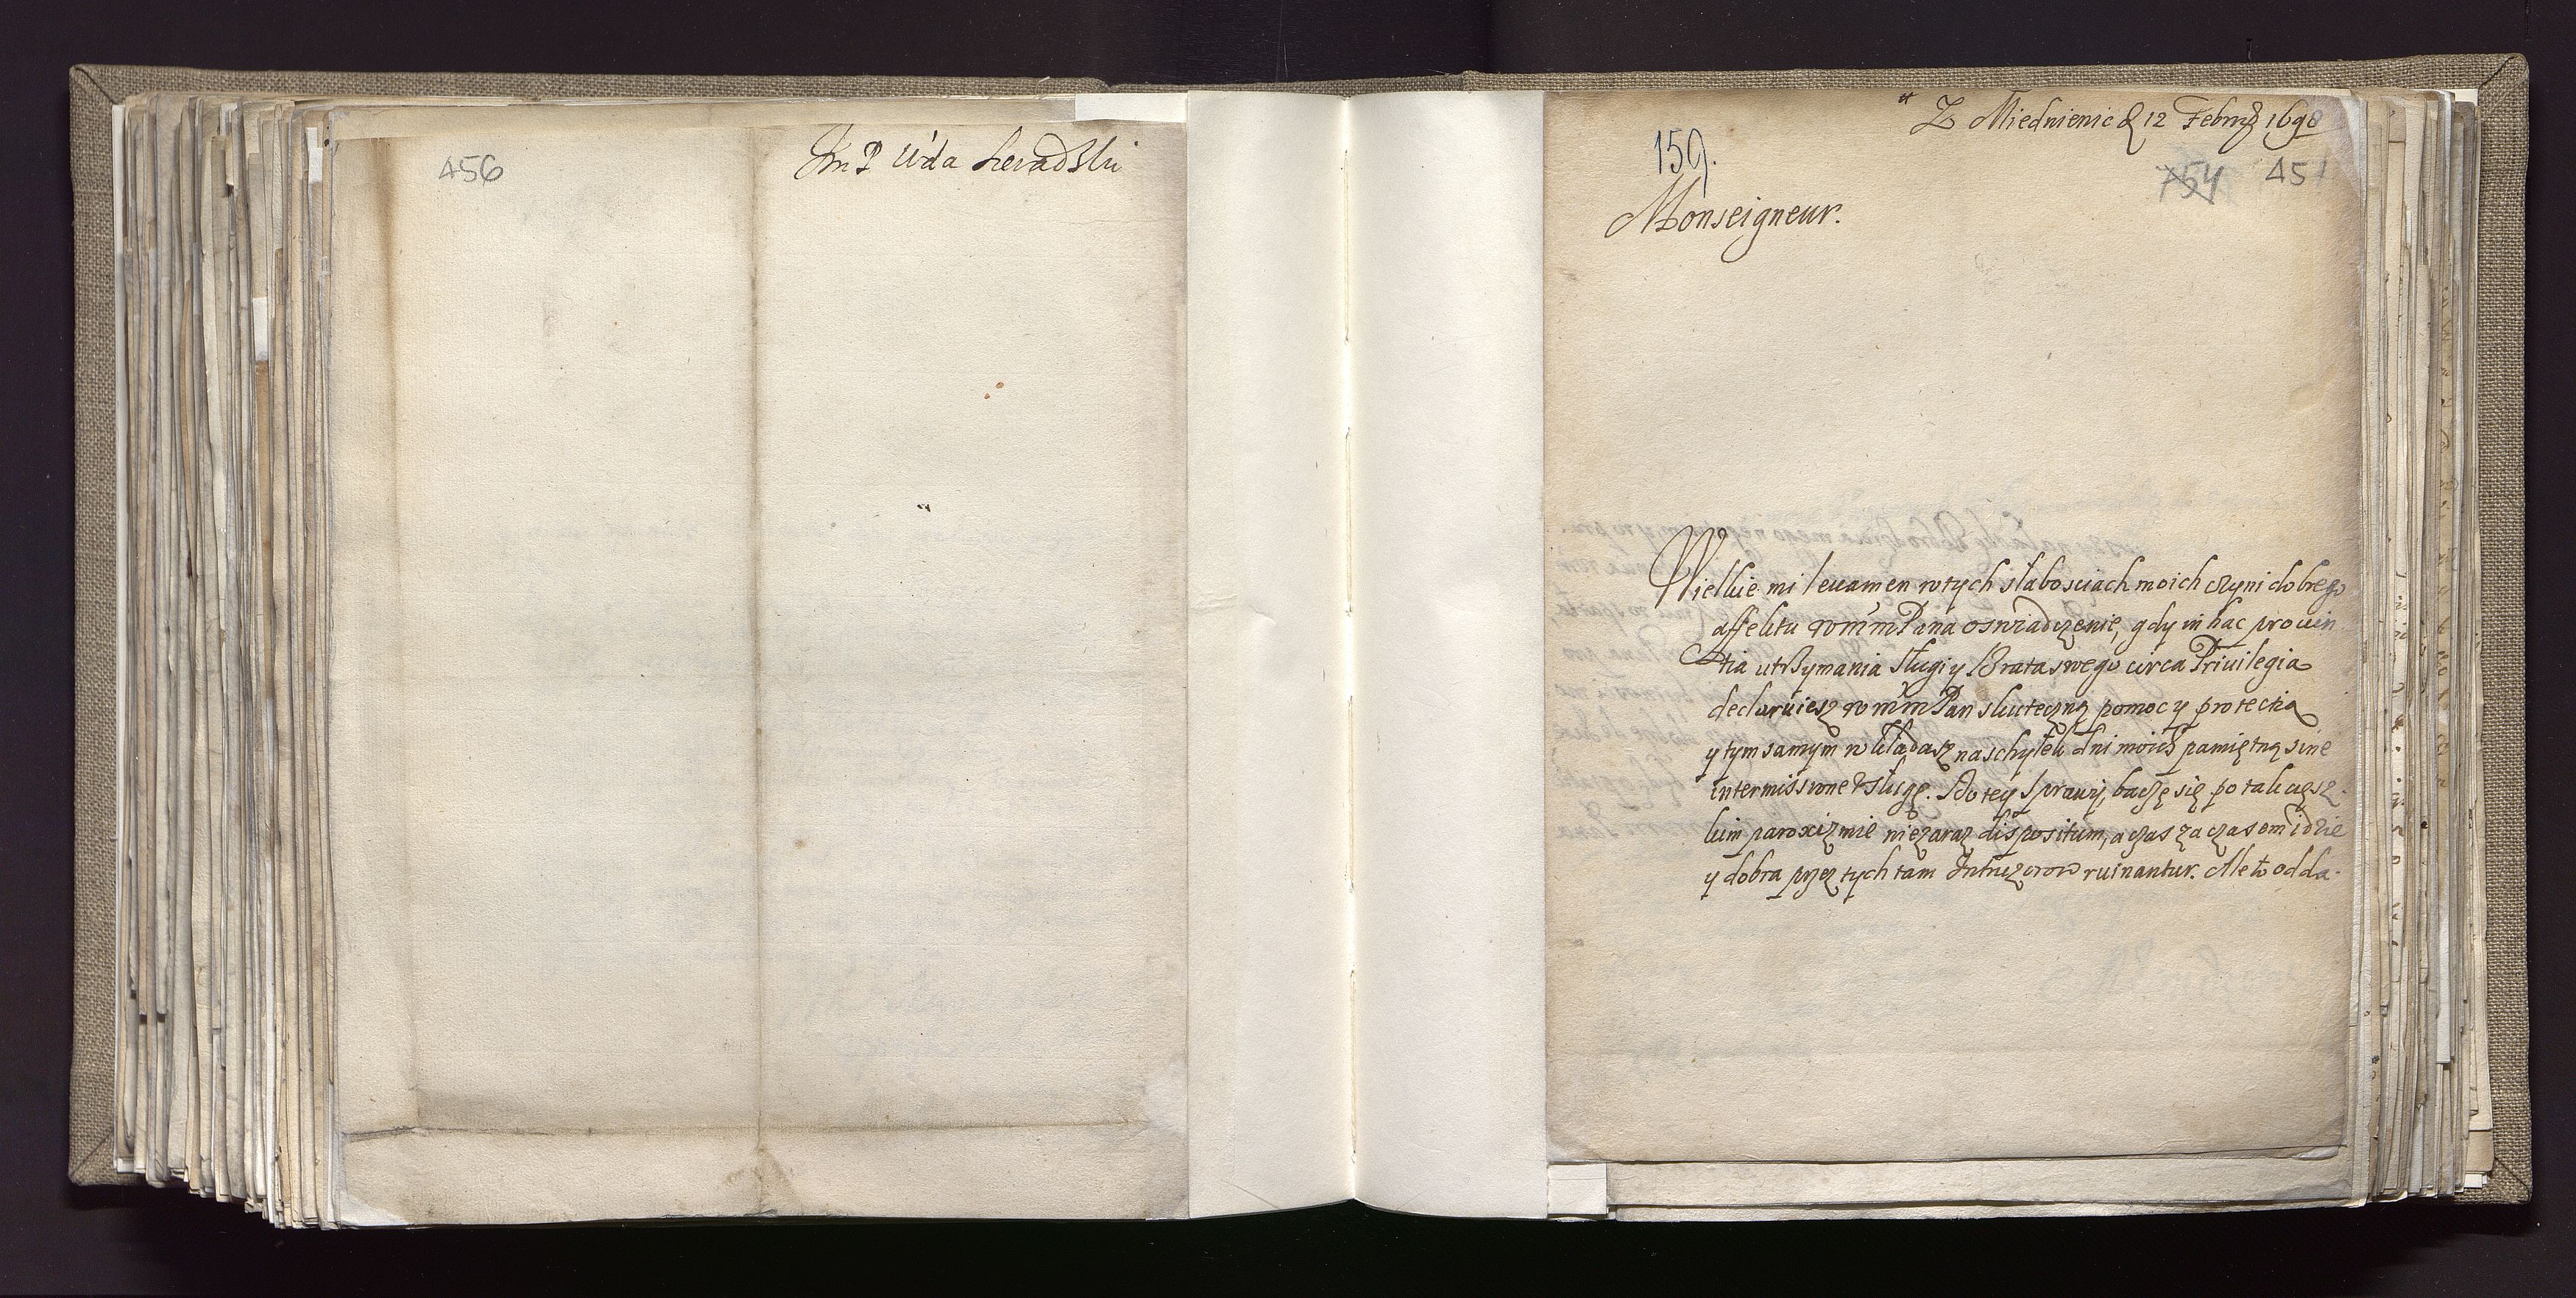 456
Jm P Wda Sieradzki
Z Miednienic d 12 Febru 1698
159.
754 451
Monseigneur.
Wielkie mi levamen w tych słabosciach moich czyni dobrego
affektu wmmPana oswiadczenie, gdy in hac provin
tia utrzymania sługi y Brata swego circa Privilegia
declaruiesz wmmPan skuteczną pomoc y protectią
y tym samym wkładasz na schyłek dni moich pamiętną sine
intermissione usługę. Do tey sprawy, baczę się po tak cięsz-
kim paroxizmie nie zaraz dispositum, a czas za czasem idzie
y dobra przez tych tam Intruzorow ruinantur. Ale to odda-